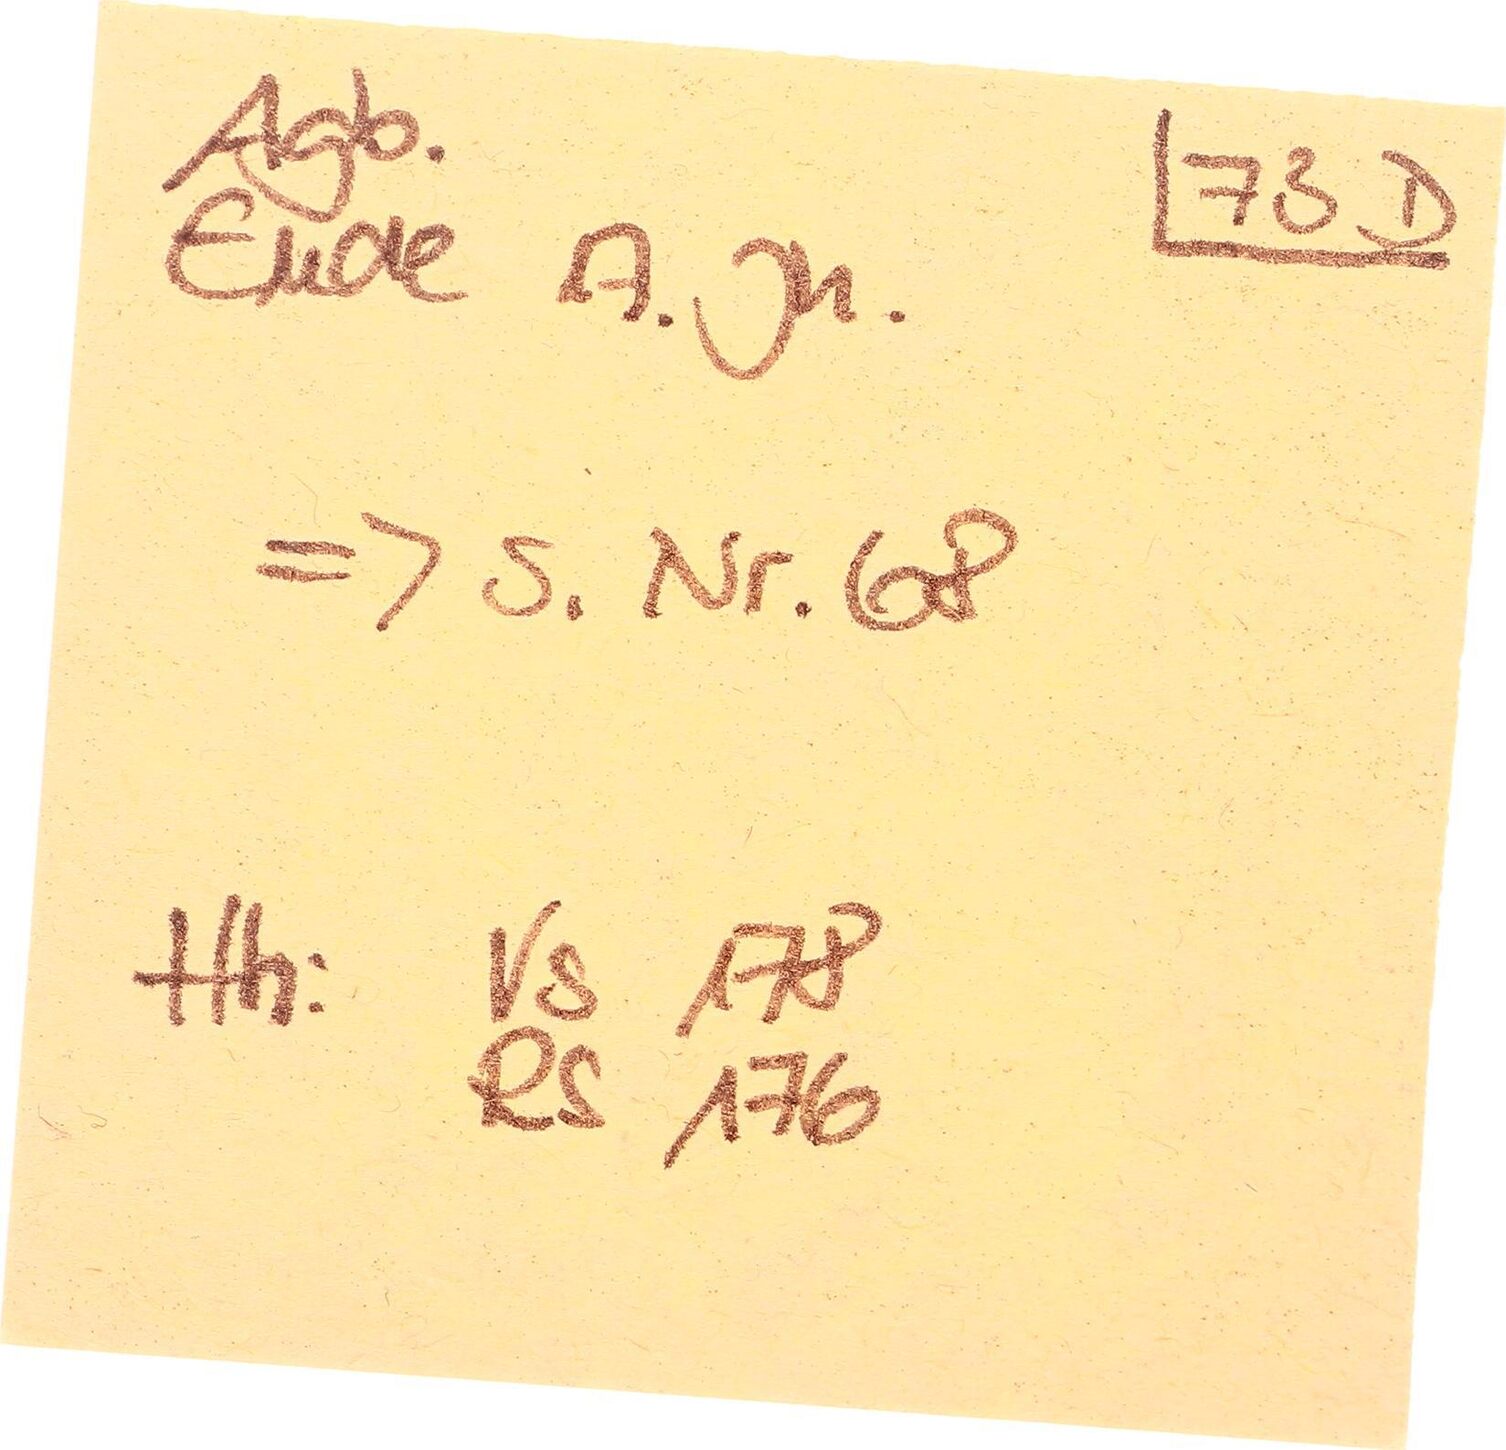 Agb.
73 D
Ende A. Jh.
=> S. Nr. 68
Hh: VS 178
RS 176